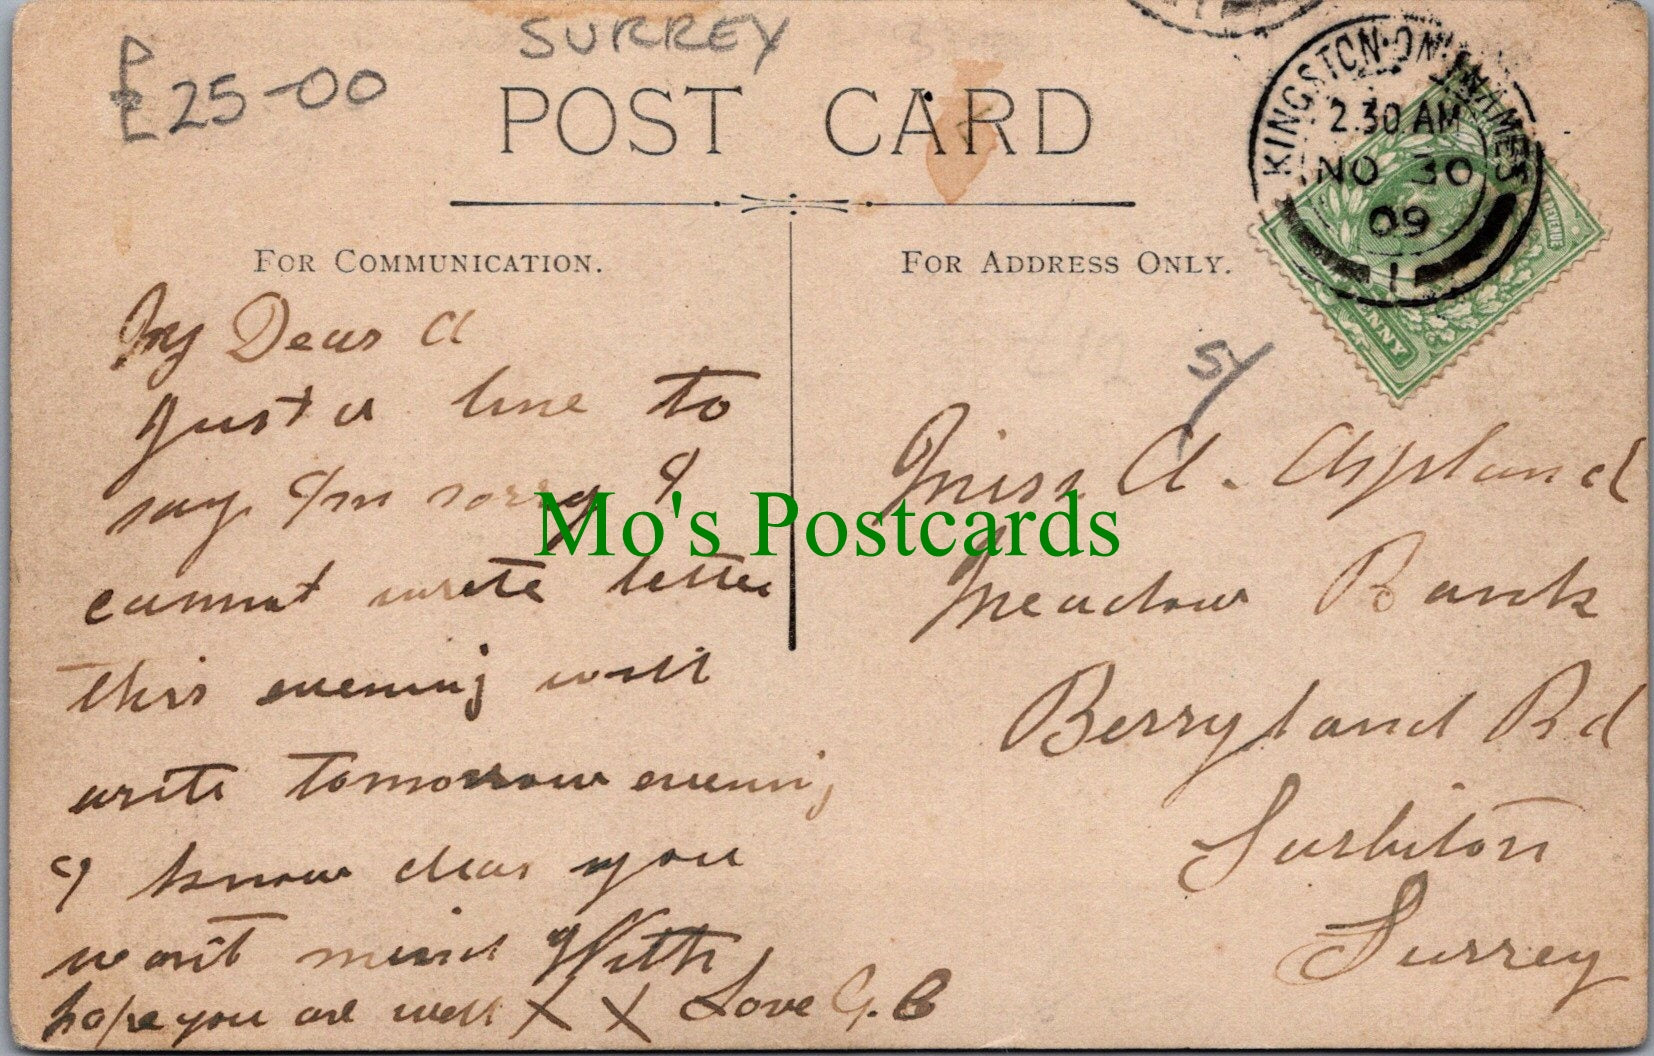 SURREY
£25-00
POST CARD
KINGSTON·ON·THAMES
2.30 AM
NO 30
09
1
FOR COMMUNICATION.
FOR ADDRESS ONLY.
My Dear A
Just a line to
say I'm sorry I
cannot write letter
this evening will
write tomorrow evening
I know dear you
won't mind With
hope you are well X X Love G.B
SY
Miss A. Aspland
Meadow Bank
Berryland Rd
Surbiton
Surrey
Mo's Postcards